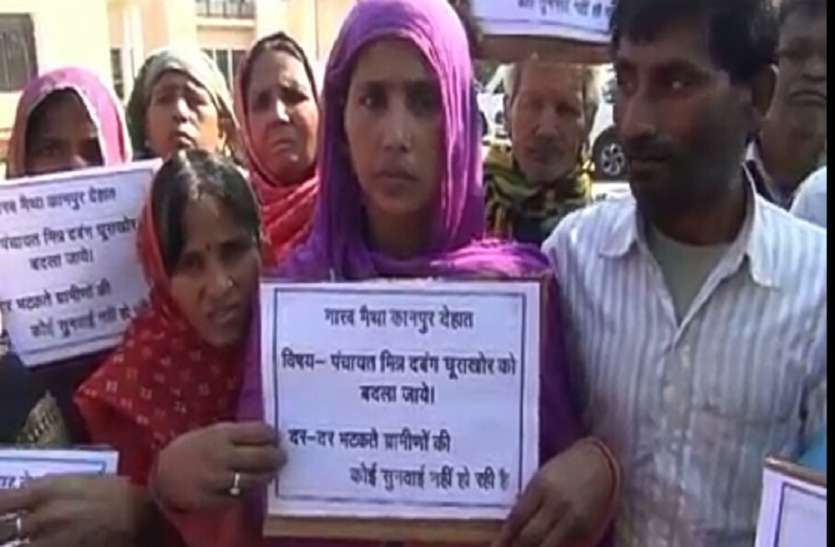 को सुनवाई नहीं
गारव मैथा कानपुर देहात
पंचायत मित्र दबंग घूराखोर
बदला जाये।
दर भटकते ग्रामीणों की
कोई सुनवाई नहीं हो रही
गारव मैथा कानपुर देहात
विषय– पंचायत मित्र दबंग घूराखोर को
बदला जाये।
दर–दर भटकते ग्रामीणों की
कोई सुनवाई नहीं हो रही है